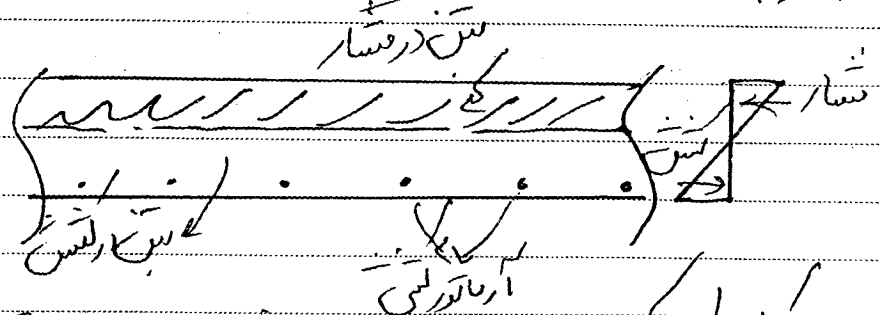 بتن در فشار
فشار
کشش
بتن در کشش
آرماتور کششی